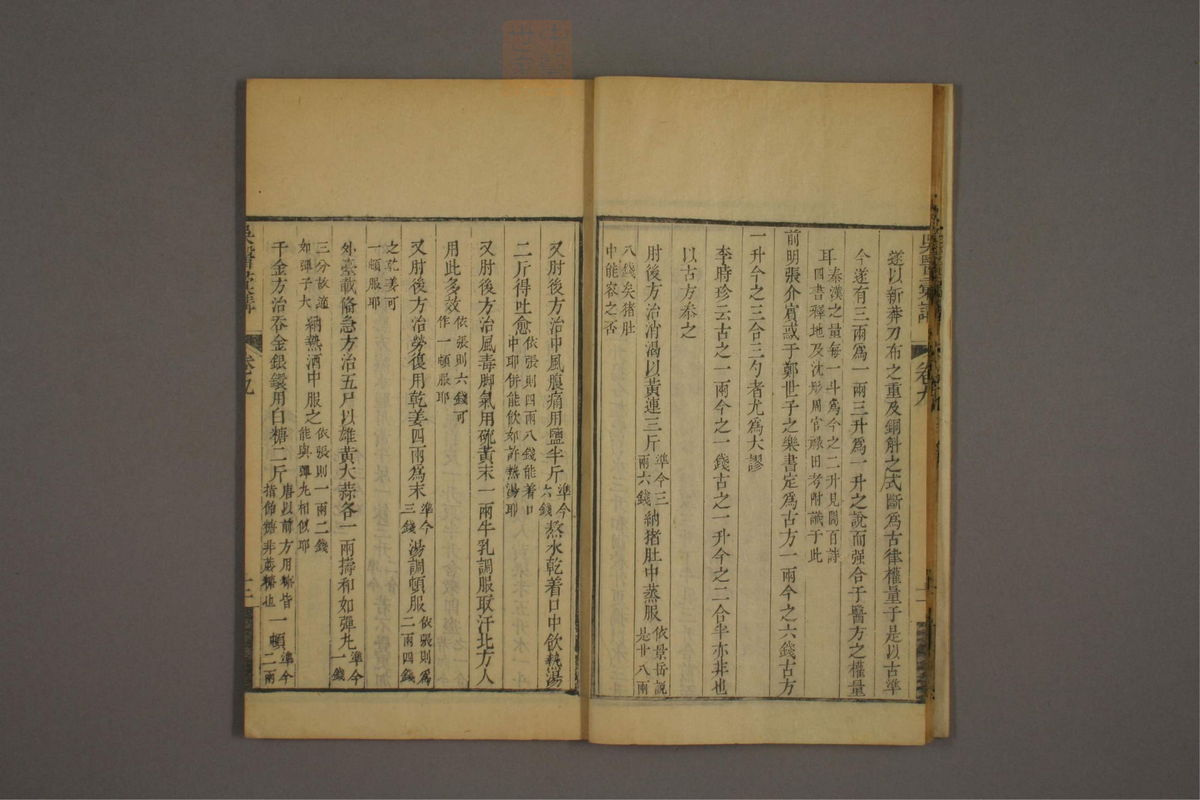 遂以新莽刀布之重及銅斛之式斷爲古律權量于是以古準
今遂有三兩爲一兩三升爲一升之說而强合于醫方之權量
耳秦漢之量每一斗爲今之二升見閻百詩
四書釋地及沈彤周官祿田考附識于此
前明張介賓惑于鄭世子之樂書定爲古方一兩今之六錢古方
一升今之三合三勺者尤爲大謬
李時珍云古之一兩今之一錢古之一升今之二合半亦非也
以古方叅之
肘後方治消渴以黃連三斤準今三兩六錢納猪肚中蒸服依景岳說是廿八兩
八錢矣猪肚
中能容之否
吳醫彙講
卷九
又肘後方治中風腹痛用鹽半斤準今六錢熬水乾着口中飲熱湯
二斤得吐愈依張則四兩八錢能着口中耶併能飲如許熱湯耶
又肘後方治風毒脚氣用硫黃末一兩牛乳調服取汗北方人
用此多效依張則六錢可作一頓服耶
又肘後方治勞復用乾姜四兩爲末準今三錢湯調頓服依張則爲二兩四錢
之乾姜可
一頓服耶
外臺載偹急方治五尸以雄黃大蒜各一兩擣和如彈丸準今一錢
三分故適
如彈子大納熱酒中服之依張則一兩二錢能與彈丸相似耶
千金方治吞金銀鐶用白糖二斤唐以前方用糖皆指飴糖非蔗糖也一頓準今二兩
吳醫彙講
卷九